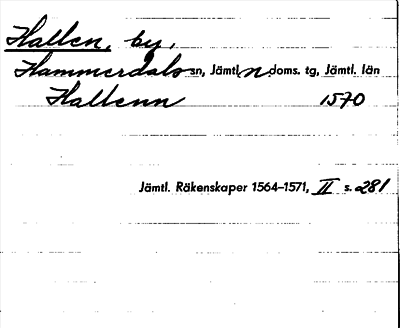 Hallen, by,
Hammerdals sn, Jämtl. n. doms. tg, Jämtl. län
Hallenn 1570
Jämtl. Räkenskaper 1564–1571, II s. 281